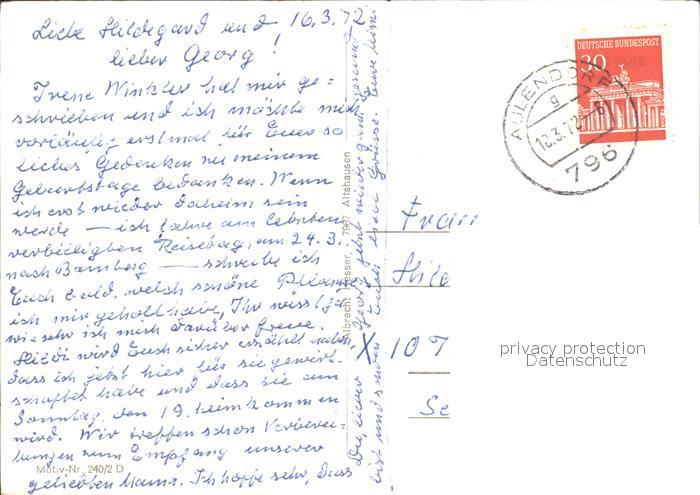 16.3.72
Liebe Hildegard und
lieber Georg!
Irene Winkler hat mir ge-
schrieben und ich möchte mich
vorläufig erst mal für Euer so
liebes Gedenken zu meinem
Geburtstage bedanken. Wenn
ich erst wieder daheim sein
werde — ich fahre am letzten
verbilligten Reisetag, am 24.3.
nach Bamberg — schreibe ich
Euch bald, welch schöne Pflanze
ich mir geholt habe, Ihr wisst ja
wie sehr ich mich darüber freue.
Hildi wird Euch sicher erzählt haben,
dass ich jetzt hier für sie gewirt-
schaftet habe und dass sie am
Sonntag, den 19. heimkommen
wird. Wir treffen schon Vorberei-
tungen zum Empfang unserer
geliebten Mama. Ich hoffe sehr, dass
Du, lieber Georg, jetzt wieder ganz gesund
bist und sende Euch liebe Grüsse Eure
Motiv-Nr. 240/2 D
Albrecht 7967 Altshausen
DEUTSCHE BUNDESPOST
30
AULENDORF
g
18.3.72
796
Frau
Hild
X 107
Se
privacy protection
Datenschutz